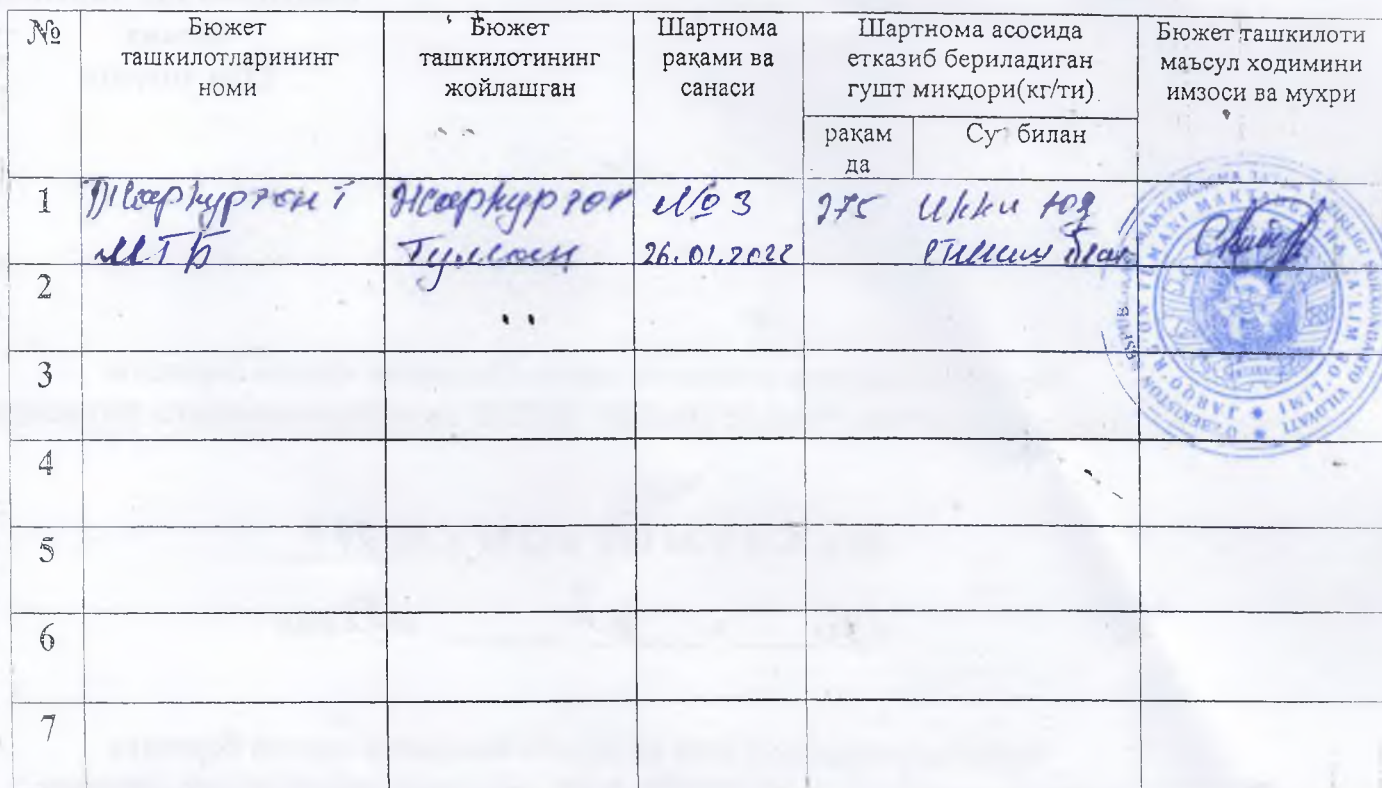 №
Бюжет
ташкилотларининг
номи
Бюжет
ташкилотининг
жойлашган
Шартнома
рақами ва
санаси
Шартнома асосида
етказиб бериладиган
гушт микдори(кг/ти)
рақам
да
Суз билан
Бюжет ташкилоти
маъсул ходимини
имзоси ва мухри
1
Жаркургон Т
МТБ
Жаркургон
Туман
№ 3
26.01.2022
275
Икки юз
етмиш беш
2
3
4
5
6
7